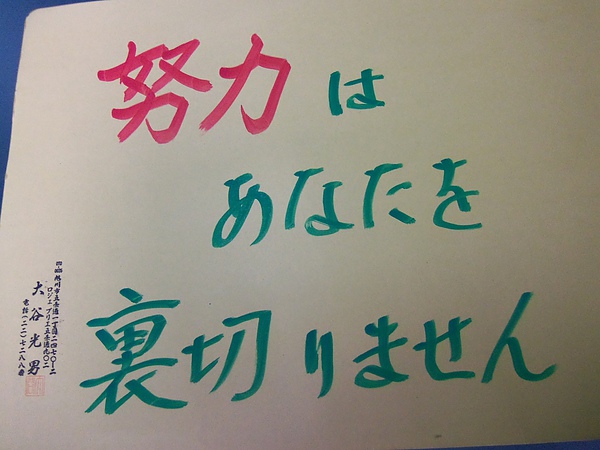 努力は
あなたを
裏切りません
大谷光男